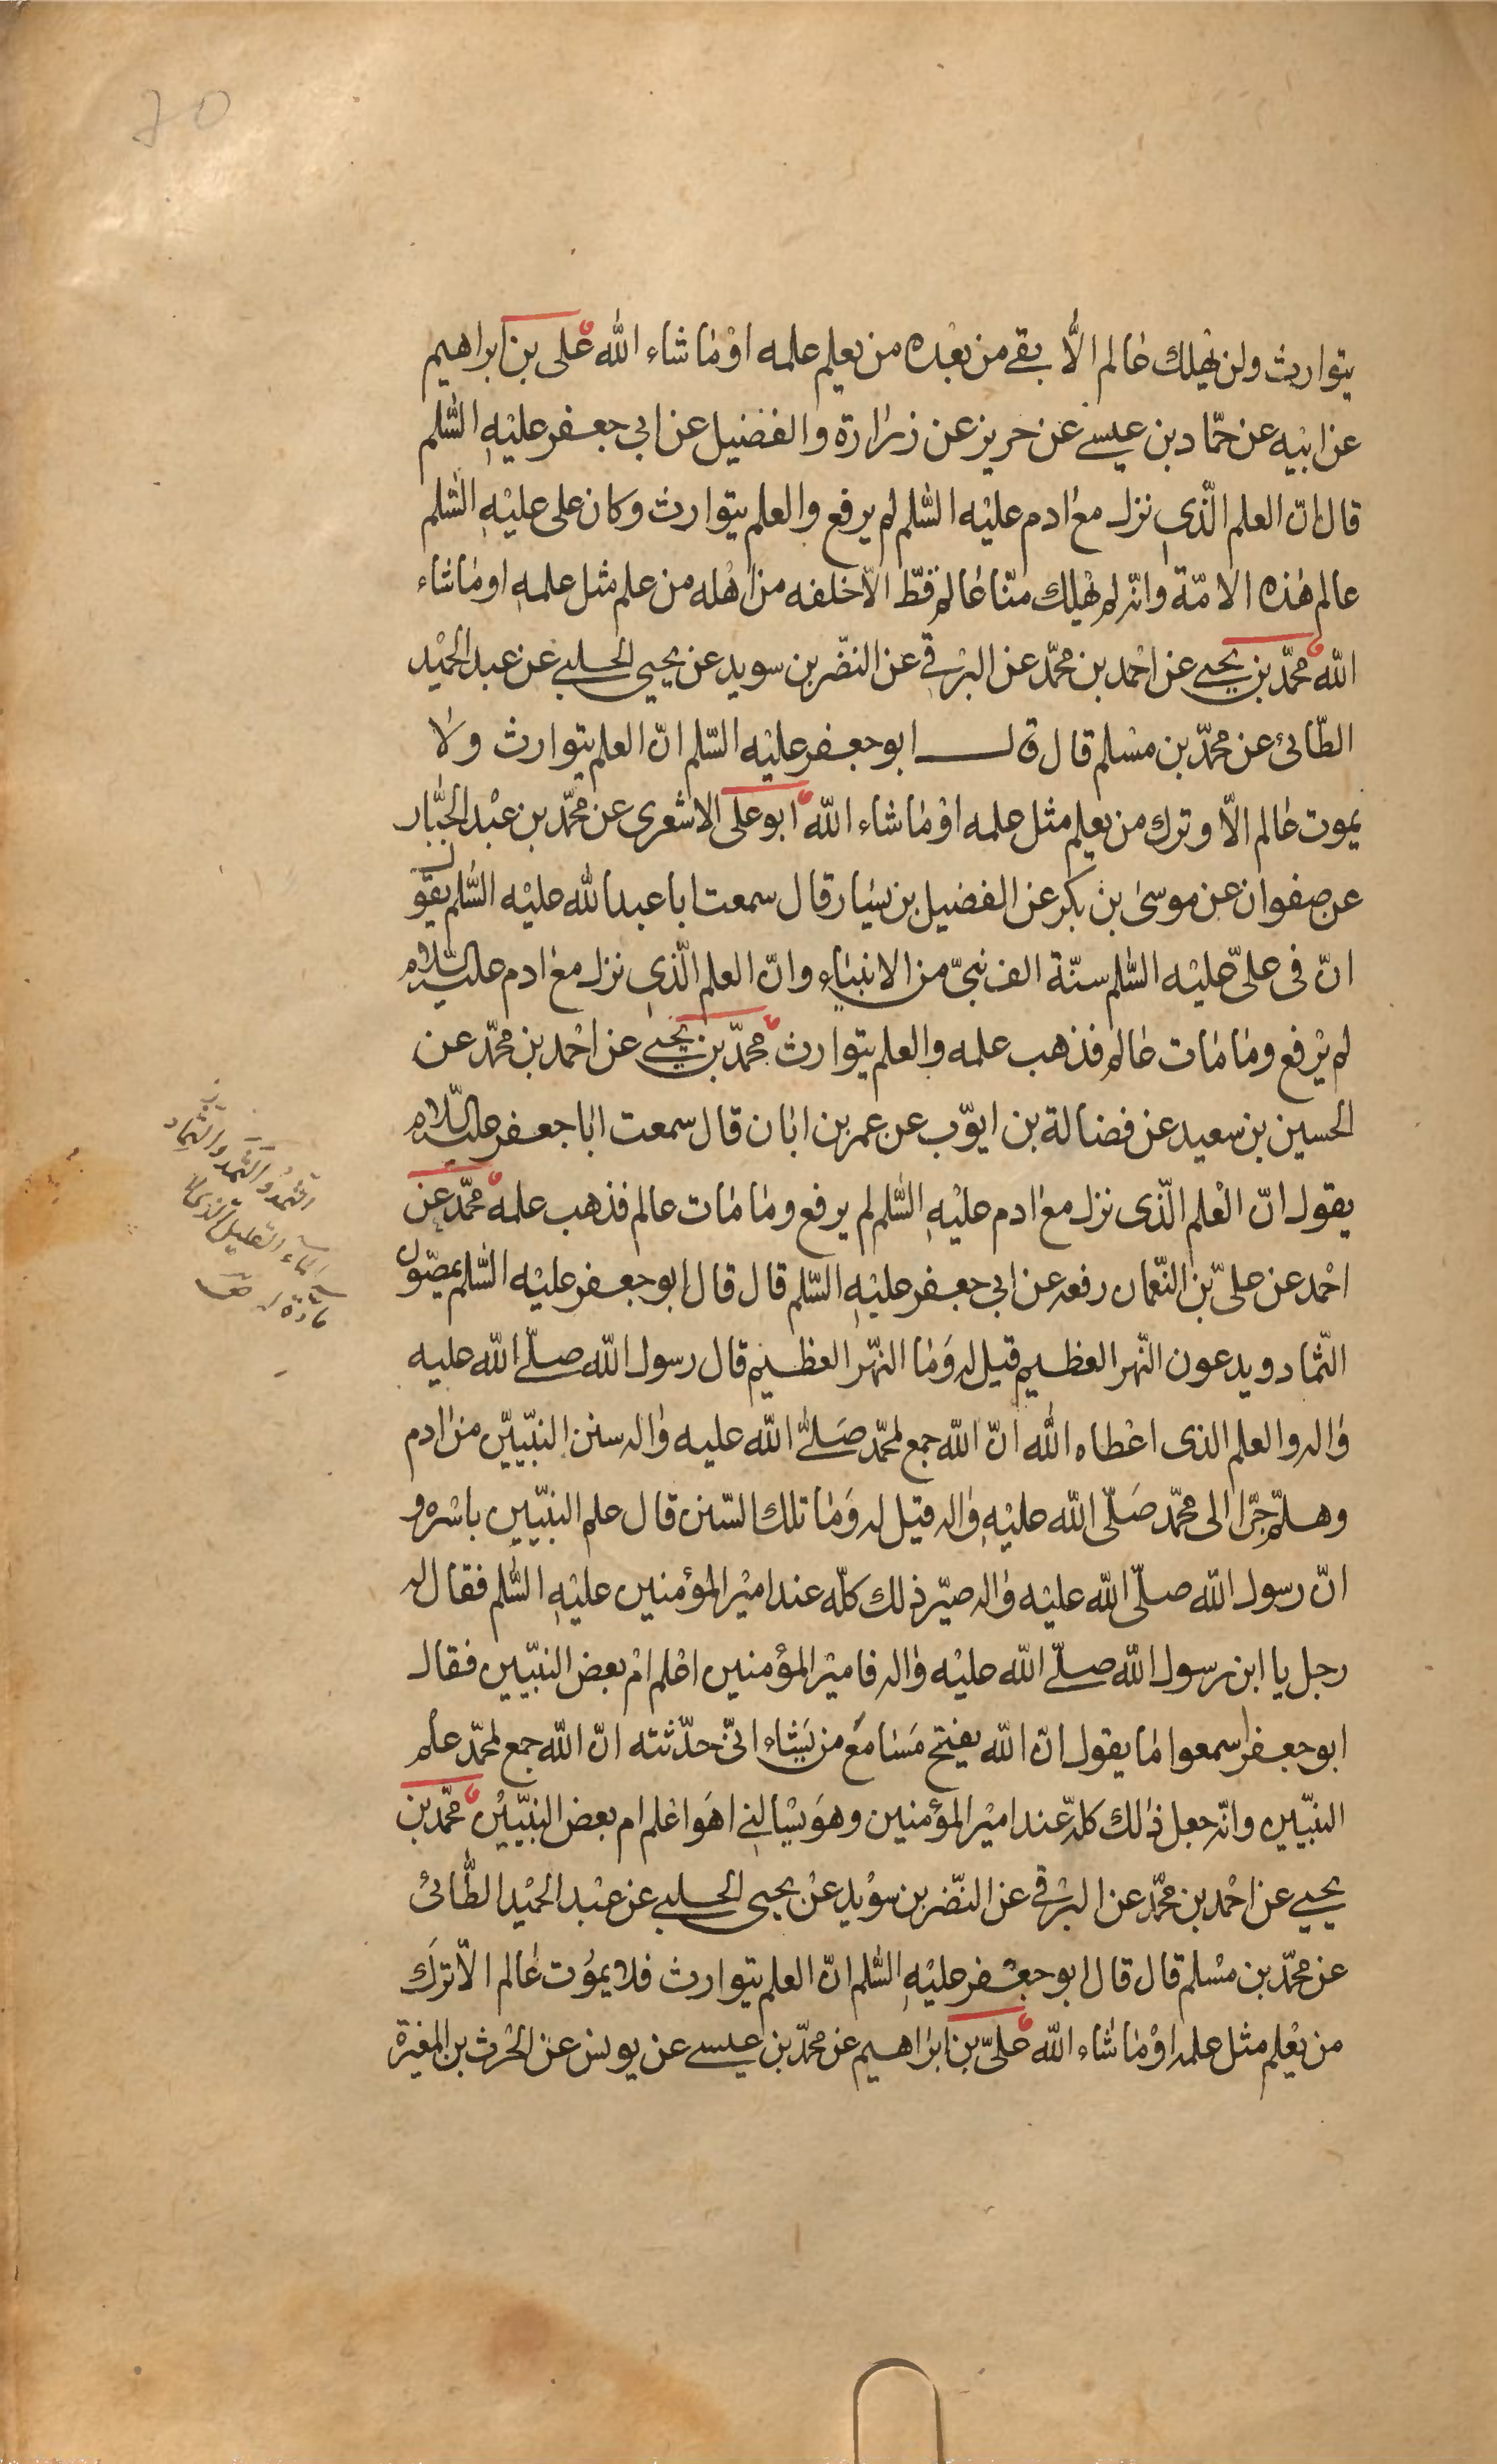 70
يتوارث ولن يهلك عالم الّا بقي من بعده من يعلم علمه او ما شاء الله علي بن ابراهيم
عن ابيه عن حمّاد بن عيسى عن حريز عن زرارة والفضيل عن ابي جعفر عليه السّلم
قال انّ العلم الّذي نزل مع ادم عليه السّلم لم يرفع والعلم يتوارث وكان على عليه السّلم
عالم هذه الامّة وانّه لم يهلك منّا عالم قطّ الّا خلفه من اهله من علم مثل علمه او ما شاء
الله محمّد بن يحيى عن احمد بن محمّد عن البرقي عن النضّر بن سويد عن يحيى الحلبي عن عبد الحميد
الطّائي عن محمّد بن مسلم قال قال ابو جعفر عليه السّلم انّ العلم يتوارث ولا
يموت عالم الّا وترك من يعلم مثل علمه او ما شاء الله ابو على الاشعرى عن محمّد بن عبد الجبّار
عن صفوان عن موسى بن بكر عن الفضيل بن يسار قال سمعت ابا عبد الله عليه السّلم يقول
انّ فى علىّ عليه السّلم سنّة الف نبىّ من الانبياء وانّ العلم الّذي نزل مع ادم عليه السّلام
لم يرفع وما مات عالم فذهب علمه والعلم يتوارث محمّد بن يحيى عن احمد بن محمّد عن
الحسين بن سعيد عن فضالة بن ايّوب عن عمر بن ابان قال سمعت ابا جعفر عليه السّلام
يقول انّ العلم الّذى نزل مع ادم عليه السّلم لم يرفع وما مات عالم فذهب علمه محمّد عن
احمد عن علىّ بن النّعمان رفعه عن ابي جعفر عليه السّلم قال قال ابو جعفر عليه السّلم يمصّون
الثّماد ويدعون النّهر العظيم قيل له وما النّهر العظيم قال رسول الله صلّى الله عليه
واله والعلم الذى اعطاه الله انّ الله جمع لمحمّد صلّى الله عليه واله سنن النبّيين من ادم
وهلمّ جرّا الى محمّد صلّى الله عليه واله قيل له وما تلك السّنن قال علم النبيّين باسره و
انّ رسول الله صلّى الله عليه واله صيّر ذلك كلّه عند امير المؤمنين عليه السّلم فقال له
رجل يا ابن رسول الله صلّى الله عليه واله فامير المؤمنين اعلم ام بعض النبيّين فقال
ابو جعفر اسمعوا ما يقول انّ الله يفتح مسامع من يشاء انّى حدّثته انّ الله جمع لمحمّد علم
النبيّين وانّه جعل ذلك كلّه عند امير المؤمنين وهو يسالني اهو اعلم ام بعض النبيّين محمّد بن
يحيى عن احمد بن محمّد عن البرقي عن النّضر بن سويد عن يحيى الحلبي عن عبد الحميد الطّائي
عن محمّد بن مسلم قال قال ابو جعفر عليه السّلم انّ العلم يتوارث فلا يموت عالم الّا ترك
من يعلم مثل علمه او ما شاء الله علىّ بن ابراهيم عن محمّد بن عيسى عن يونس عن الحرث بن المغيرة
الثمد والثمد والثماد
الماء القليل الذى لا
مادة له ق